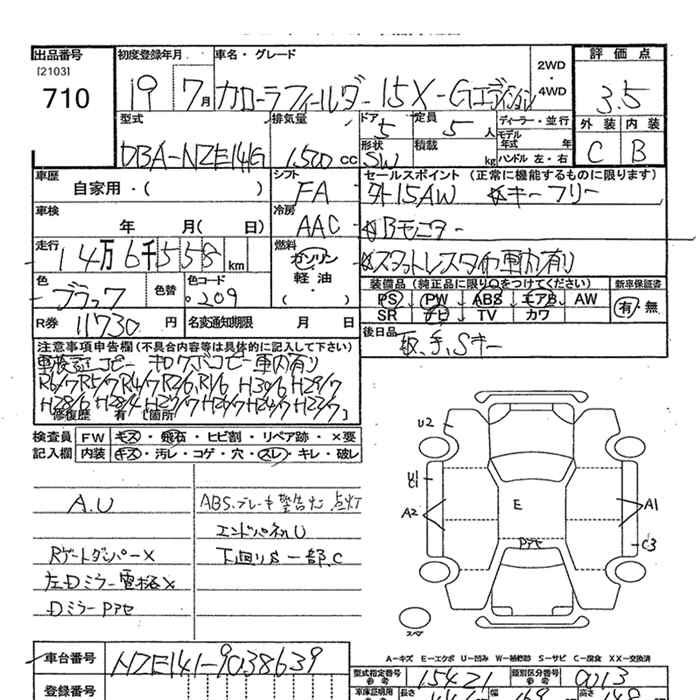 出品番号 初度登録年月 車名・グレード 2WD・4WD 評価点
[2103]
710 19 7月 カローラフィールダー 15X-Gエディション 3.5
型式 排気量 ドア 5 定員 5人 ディーラー・並行 外装 内装
DBA-NZE141G 1,500cc 形状 SW 積載 kg モデル年式 年 ハンドル 左・右 C B
車歴 自家用・( ) シフト FA セールスポイント (正常に機能するものに限ります)
外15AW ☆キーフリー
車検 年 月( 日) 冷房 AAC ☆Bモニター
走行 14万6千558km 燃料 ガソリン 軽油・ ☆スタットレスタイヤ車内有り
色 ブラック 色替 色コード 209 装備品 (純正品に限り○をつけてください) 新車保証書
PS PW ABS エアB AW 有・無
SR ナビ TV カワ
R券 11730円 名変通知期限 月 日 後日品 取、手、Sキー
注意事項申告欄(不具合内容等は具体的に記入して下さい)
車検証コピー キロクボコピー車内有り
R6/7 R5/7 R4/7 R2/6 R1/6 H30/6 H29/7
H28/6 H28/4 H27/7 H26/7 H24/7 H22/7
修復歴 有 [箇所 ]
検査員 FW キズ・飛石・ヒビ割・リペア跡・×要
記入欄 内装 キズ・汚レ・コゲ・穴・スレ・キレ・破レ
A.U ABS、ブレーキ警告灯 点灯
エンドパネルU
Rゲートダンパー× 下回りS一部、C
左Dミラー電格×
Dミラー Pアセ
U2
U1
C1
A2 E A1
Pアセ C3
スペア
A-キズ E-エクボ U-凹み W-補修跡 S-サビ C-腐食 XX-交換済
車台番号 NZE141-9038639
型式指定番号 参考 15421 類別区分番号 参考 0013
登録番号 車庫証明用 参考 長さ 幅 高さ